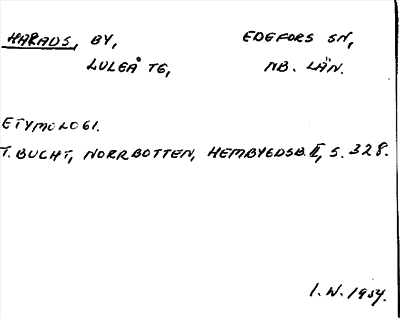 HARADS, BY, EDEFORS SN,
LULEÅ TG, NB. LÄN.
ETYMOLOGI.
T. BUCHT, NORRBOTTEN, HEMBYGDSB. II, S. 328.
I. W. 1954.